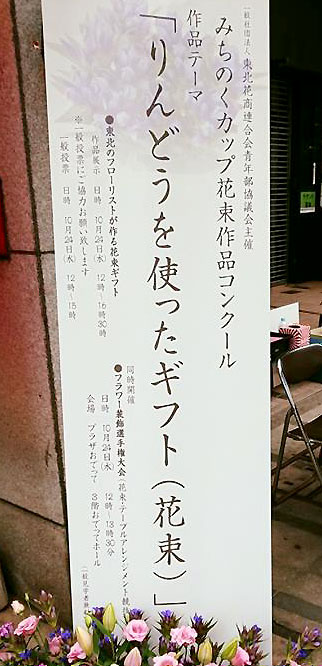 一般社団法人 東北花商連合会青年部協議会主催
みちのくカップ花束作品コンクール
作品テーマ
「りんどうを使ったギフト(花束)」
●東北のフローリストが作る花束ギフト
作品展示 日時 10月24日(水) 12時〜16時30分
※一般投票にご協力お願い致します
一般投票 日時 10月24日(水) 12時〜15時
同時開催
●フラワー装飾選手権大会(花束・テーブルアレンジメント競技)
日時 10月24日(水) 12時〜13時30分
会場 プラザおでって 3階おでってホール